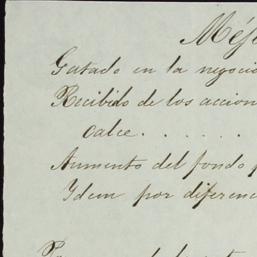 Méj
Gastado en la negocia
Recibido de los accion
calce . . . . . .
Aumento del fondo p
Ydem por diferenc